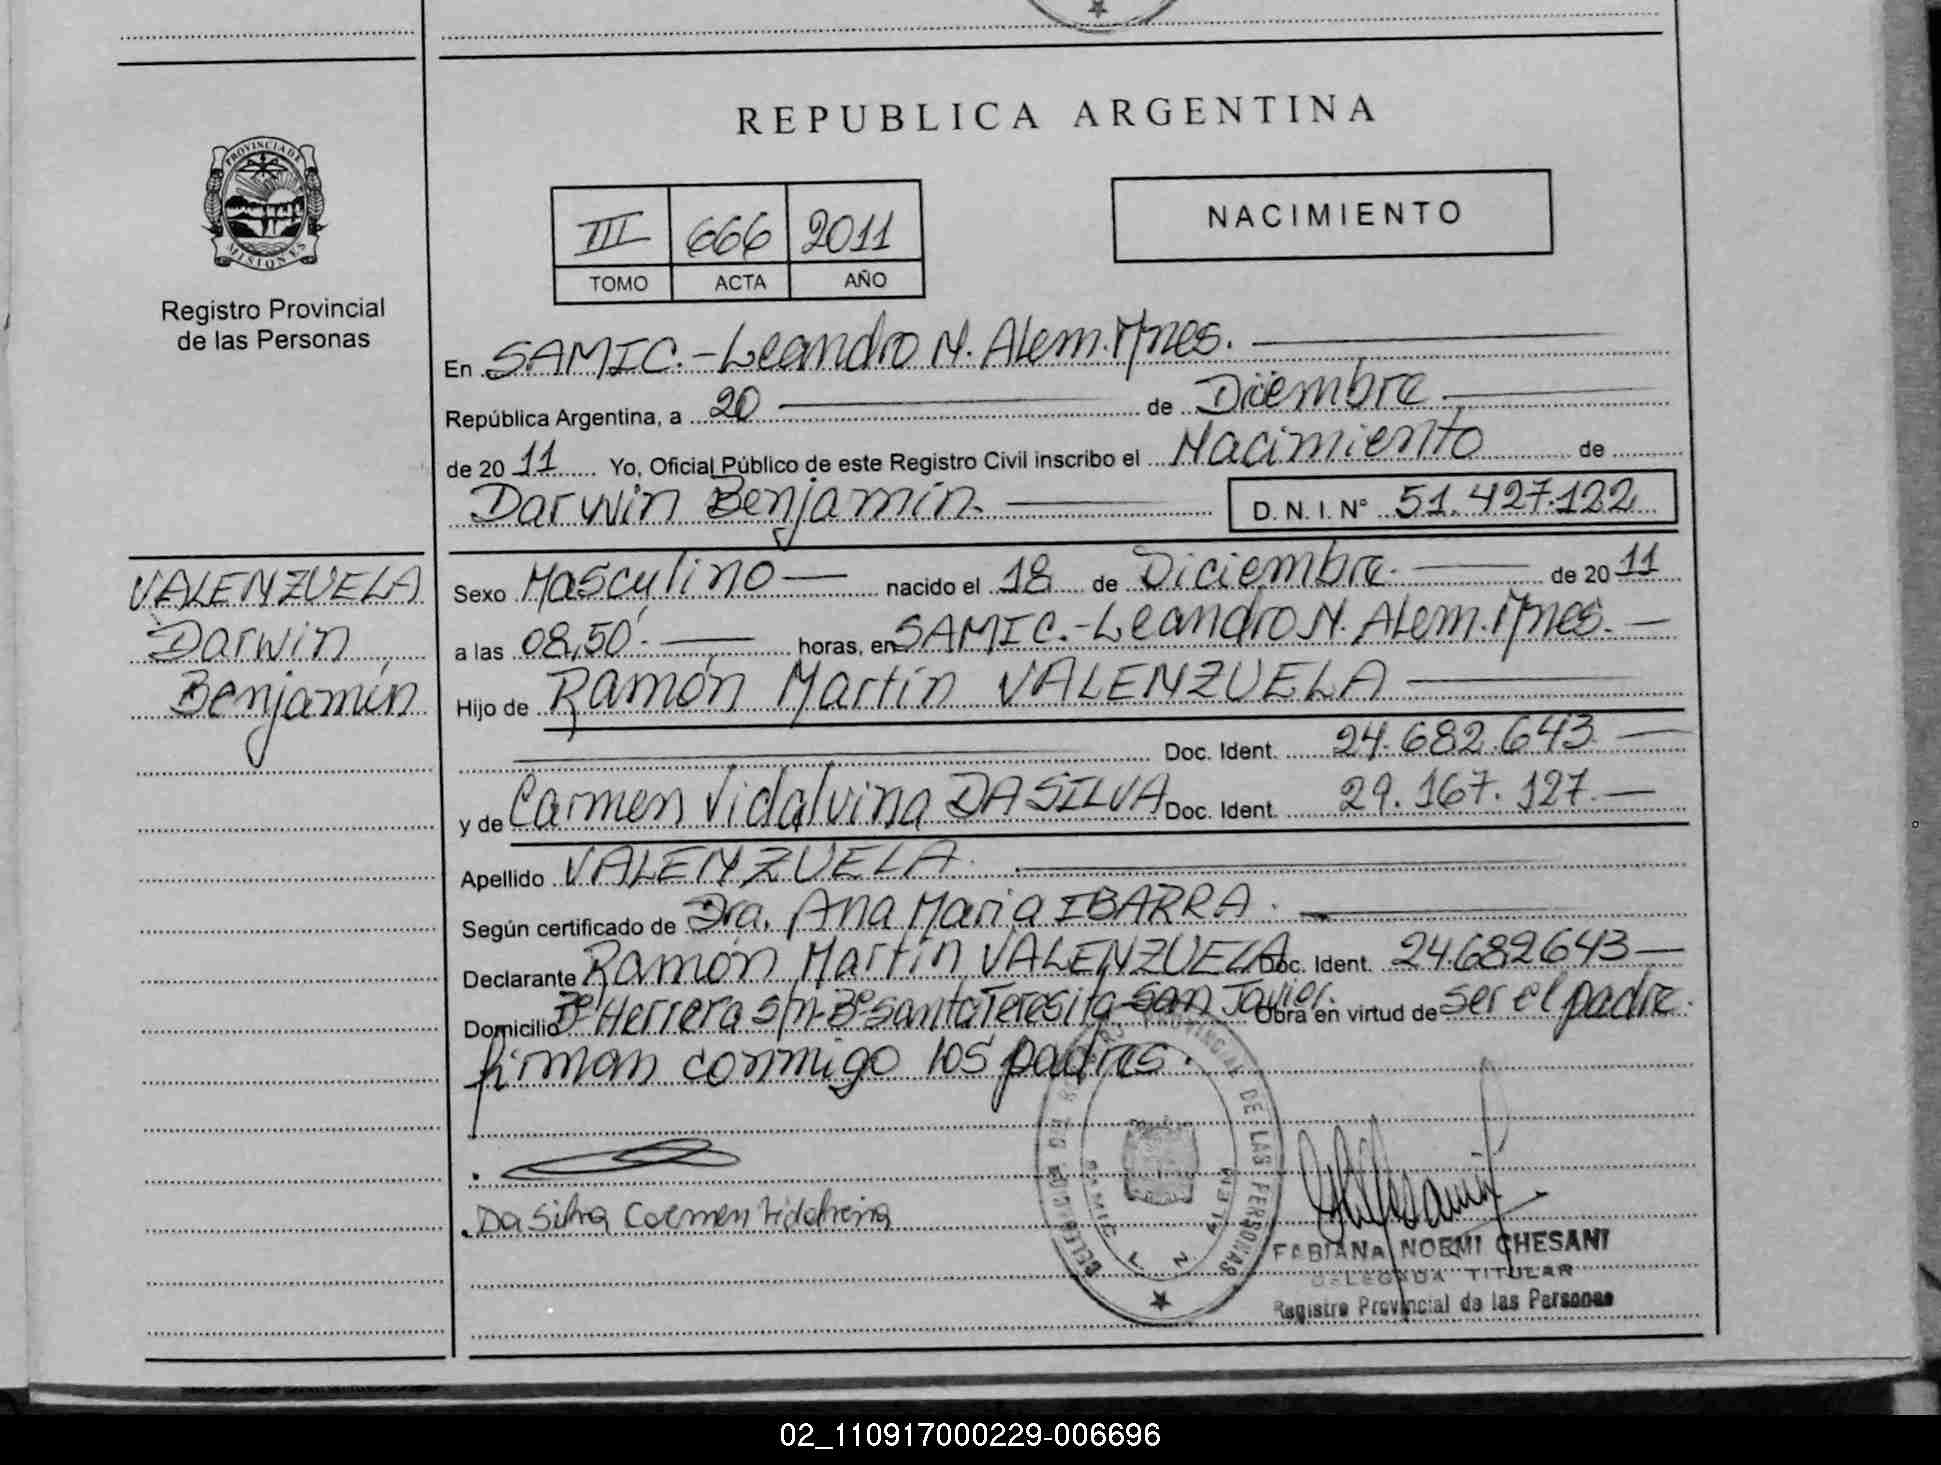 REPUBLICA ARGENTINA
PROVINCIA DE MISIONES
Registro Provincial
de las Personas
III 666 2011
TOMO ACTA AÑO
NACIMIENTO
En SAMIC.-Leandro N. Alem. Mnes.
República Argentina, a 20 de Diciembre
de 2011 Yo, Oficial Público de este Registro Civil inscribo el Nacimiento de
Darwin Benjamín. D. N. I. Nº 51.427.122
VALENZUELA
Darwin
Benjamín
Sexo Masculino nacido el 18 de Diciembre. de 2011
a las 08,50'. horas, en SAMIC.-Leandro N. Alem. Mnes.
Hijo de Ramón Martín VALENZUELA
Doc. Ident. 24.682.643
y de Carmen Vidalvina DA SILVA Doc. Ident. 29.167.127.
Apellido VALENZUELA.
Según certificado de Dra. Ana Maria IBARRA.
Declarante Ramón Martín VALENZUELA Doc. Ident. 24.682643
Domicilio Bº Herrera s/n-Bº Santa Teresita-San Javier. Obra en virtud de ser el padre.
firman conmigo los padres.
Da Silva Carmen Vidalvina
REGISTRO PROVINCIAL DE LAS PERSONAS
SAMIC L. N. ALEM
FABIANA NOEMI CHESANI
DELEGADA TITULAR
Registro Provincial de las Personas
02_110917000229-006696